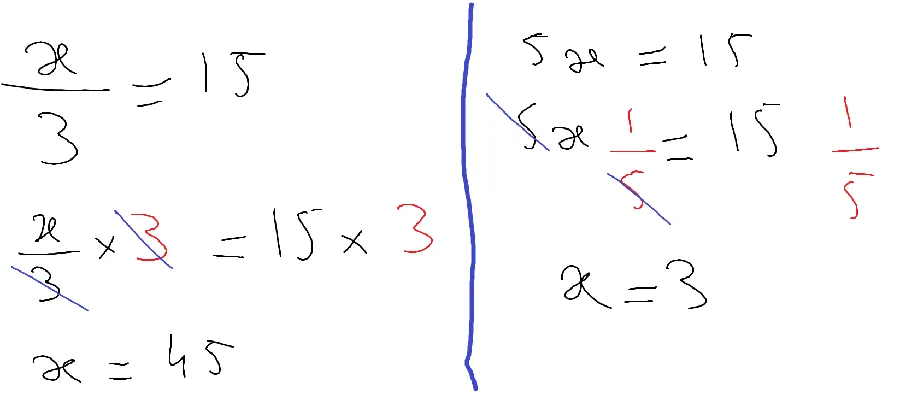 x/3 = 15
x/3 × 3 = 15 × 3
x = 45
5x = 15
5x 1/5 = 15 1/5
x = 3